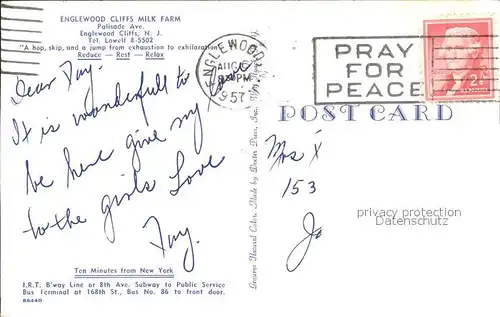 ENGLEWOOD CLIFFS MILK FARM
Palisade Ave.
Englewood Cliffs, N. J.
Tel. Lowell 8-5502
"A hop, skip, and a jump from exhaustion to exhilaration"
Reduce — Rest — Relax
Dear Fay.
It is wonderfull to
be here give my love
to the girls Love
Fay.
Ten Minutes from New York
I.R.T. B'way Line or 8th Ave. Subway to Public Service
Bus Terminal at 168th St., Bus No. 86 to front door.
86440
Genuine Natural Color. Made by Dexter Press, Inc.
ENGLEWOOD
AUG
PM
1957
PRAY
FOR
PEACE
2¢
POST CARD
Mrs X
153
Jo
privacy protection
Datenschutz